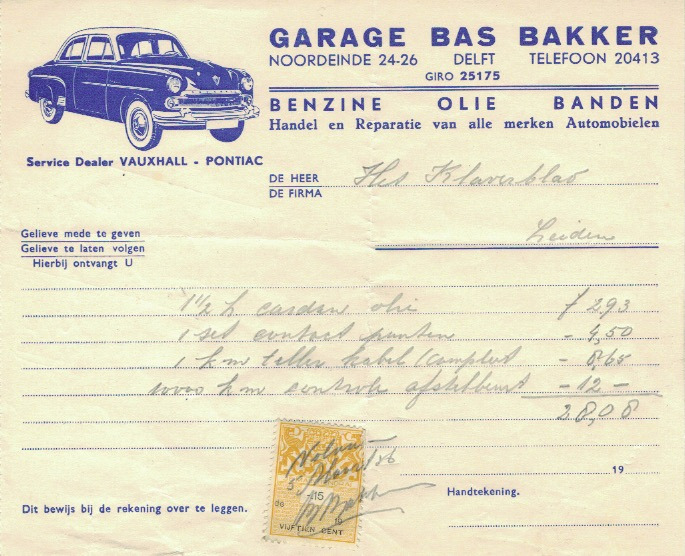 GARAGE BAS BAKKER
NOORDEINDE 24-26 DELFT TELEFOON 20413
GIRO 25175
BENZINE OLIE BANDEN
Handel en Reparatie van alle merken Automobielen
Service Dealer VAUXHALL - PONTIAC
DE HEER
DE FIRMA
Het Klaverblad
Leiden
Gelieve mede te geven
Gelieve te laten volgen
Hierbij ontvangt U
1 1/2 l cardan olie f 2,93
1 set contact punten - 4,50
1 k m teller kabel compleet - 8,65
1000 k m controle afstelbeurt - 12 -
28,08
Voldaan
5 Maart 56
B Bakker
-.15
VIJFTIEN CENT
19
Dit bewijs bij de rekening over te leggen.
Handtekening.